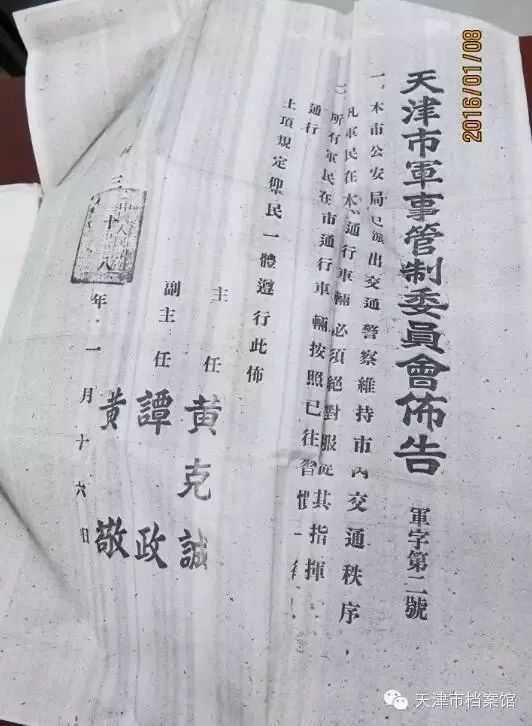 天津市軍事管制委員會佈告
軍字第二號
一,本市公安局已派出交通警察維持市內交通秩序,
凡軍民在本市通行車輛必須絕對服從其指揮
二,所有軍民在市通行車輛按照已往習慣一律
通行
上項規定俾民一體遵行此佈
主任 黃克誠
副主任 譚政
黃敬
三十八年一月十六日
2016/01/08
天津市档案馆